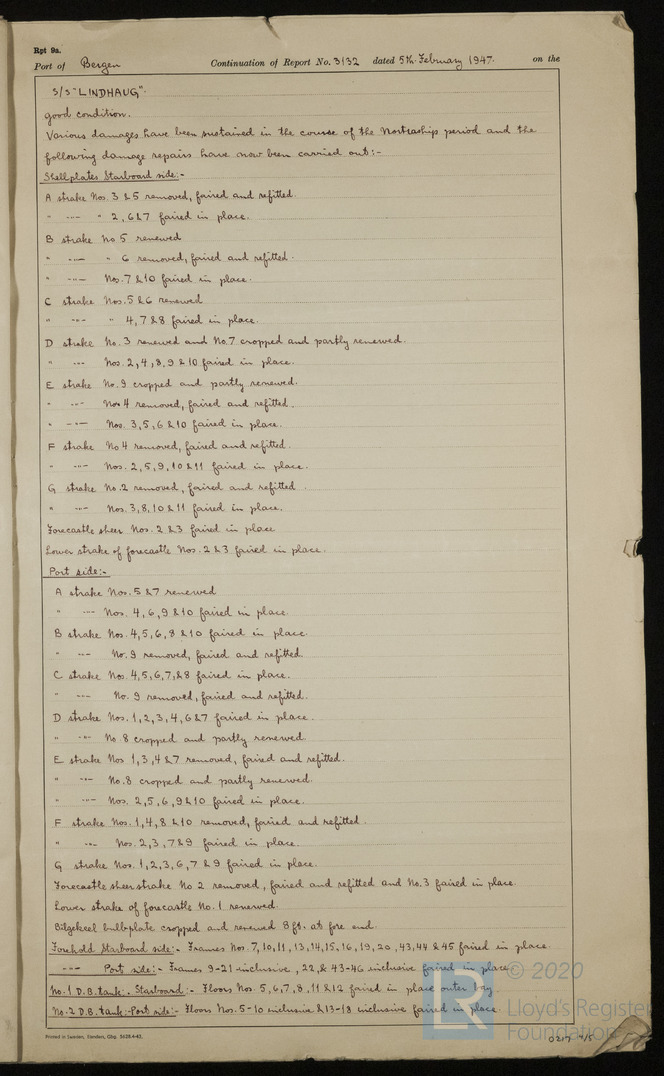 Rpt 9a.
Port of Bergen Continuation of Report No. 3132 dated 5th February 1947. on the
S/S "LINDHAUG".
good condition.
Various damages have been sustained in the course of the Nortraship period and the
following damage repairs have now been carried out:-
Shellplates Starboard side:-
A strake Nos. 3 & 5 removed, faired and refitted.
" -..- " 2, 6 & 7 faired in place.
B strake No 5 renewed
" -..- " 6 removed, faired and refitted.
" -..- Nos. 7 & 10 faired in place.
C strake Nos. 5 & 6 renewed
" -..- " 4, 7 & 8 faired in place.
D strake No. 3 renewed and No. 7 cropped and partly renewed.
" -..- Nos. 2, 4, 8, 9 & 10 faired in place.
E strake No. 9 cropped and partly renewed.
" -..- No. 4 removed, faired and refitted.
" -..- Nos. 3, 5, 6 & 10 faired in place.
F strake No 4 removed, faired and refitted.
" -..- Nos. 2, 5, 9, 10 & 11 faired in place.
G strake No. 2 removed, faired and refitted
" -..- Nos. 3, 8, 10 & 11 faired in place.
Forecastle sheer Nos. 2 & 3 faired in place
Lower strake of forecastle Nos. 2 & 3 faired in place.
Port side:-
A strake Nos. 5 & 7 renewed
" -..- Nos. 4, 6, 9 & 10 faired in place.
B strake Nos. 4, 5, 6, 8 & 10 faired in place.
" -..- No. 9 removed, faired and refitted
C strake Nos. 4, 5, 6, 7, & 8 faired in place.
" -..- No. 9 removed, faired and refitted.
D strake Nos. 1, 2, 3, 4, 6 & 7 faired in place.
" -..- No. 8 cropped and partly renewed
E strake Nos 1, 3, 4 & 7 removed, faired and refitted.
" -..- No. 8 cropped and partly renewed.
" -..- Nos. 2, 5, 6, 9 & 10 faired in place.
F strake Nos. 1, 4, 8 & 10 removed, faired and refitted.
" -..- Nos. 2, 3, 7 & 9 faired in place.
G strake Nos. 1, 2, 3, 6, 7 & 9 faired in place.
Forecastle sheerstrake No 2 removed, faired and refitted and No. 3 faired in place.
Lower strake of forecastle No. 1 renewed.
Bilgekeel bulbplate cropped and renewed 8 ft. at fore end.
Forehold Starboard side:- Frames Nos. 7, 10, 11, 13, 14, 15, 16, 19, 20, 43, 44 & 45 faired in place.
-..- Port side:- Frames 9-21 inclusive, 22, & 43-46 inclusive faired in place
No. 1 D.B. tank:- Starboard:- Floors Nos. 5, 6, 7, 8, 11 & 12 faired in place outer bay
No. 2 D.B. tank:- Port side:- Floors Nos. 5-10 inclusive & 13-18 inclusive faired in place.
Printed in Sweden, Elanders, Gbg. 5628.4-45.
© 2020
Lloyd's Register
Foundation
LR
0217 4/5